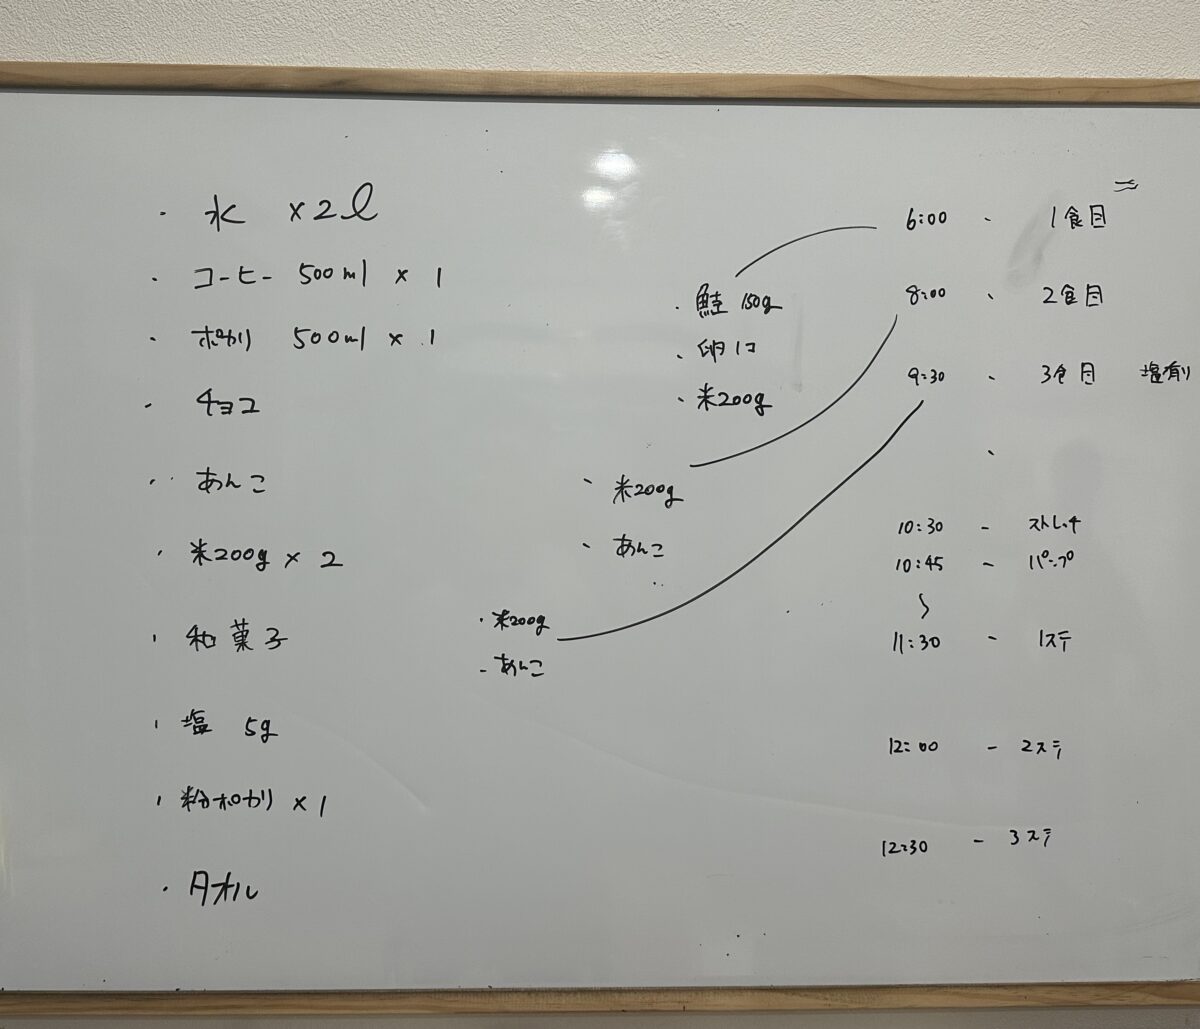 ・ 水 ×2ℓ
・ コーヒー 500ml × 1
・ ポカリ 500ml × 1
・ チョコ
・ あんこ
・ 米200g × 2
・ 和菓子
・ 塩 5g
・ 粉ポカリ × 1
・ タオル
・ 鮭 150g
・ 卵1コ
・ 米200g
・ 米200g
・ あんこ
・ 米200g
・ あんこ
6:00 - 1食目
8:00 - 2食目
9:30 - 3食目 塩有り
10:30 - ストレッチ
10:45 - パンプ
〜
11:30 - 1ステ
12:00 - 2ステ
12:30 - 3ステ